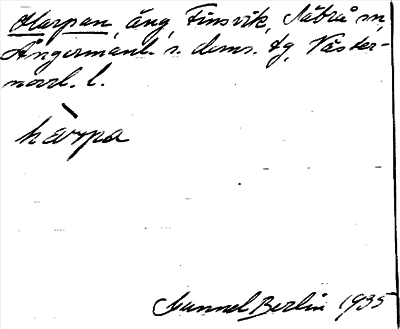 Harpan, äng, Finsvik, Säbrå sn,
Ångermanl. s. doms. tg, Väster-
norrl. l.
hàrpa
Gunnel Berlin 1935